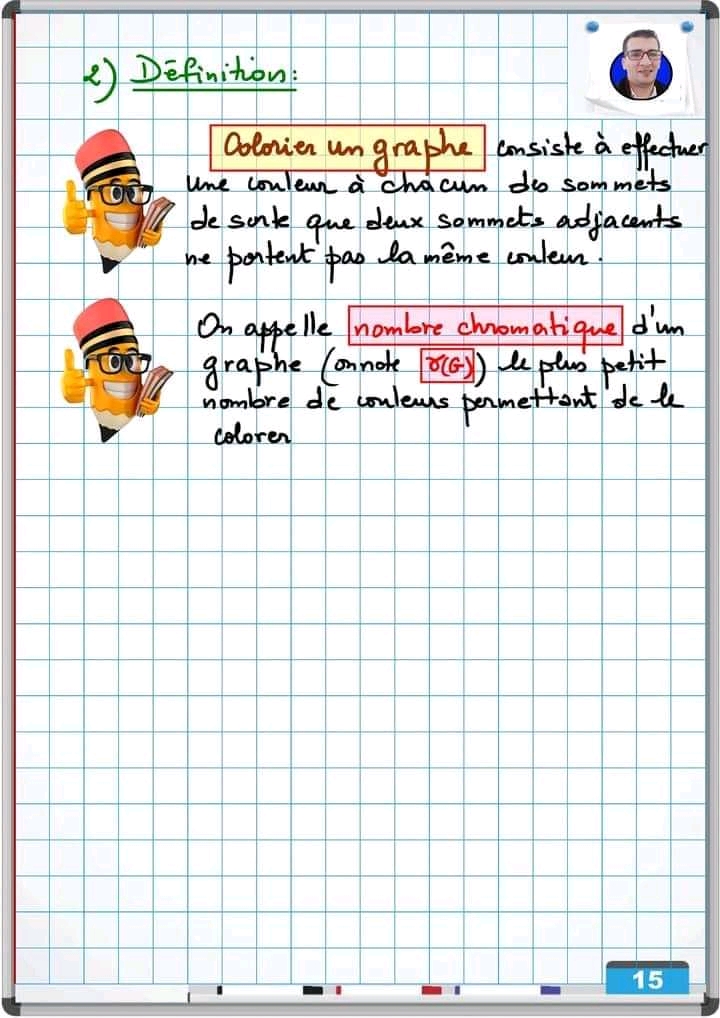 2) Définition:
Colorier un graphe consiste à effectuer
une couleur à chacun des sommets
de sorte que deux sommets adjacents
ne portent pas la même couleur.
On appelle nombre chromatique d'un
graphe (on note γ(G)) le plus petit
nombre de couleurs permettant de le
colorer
15